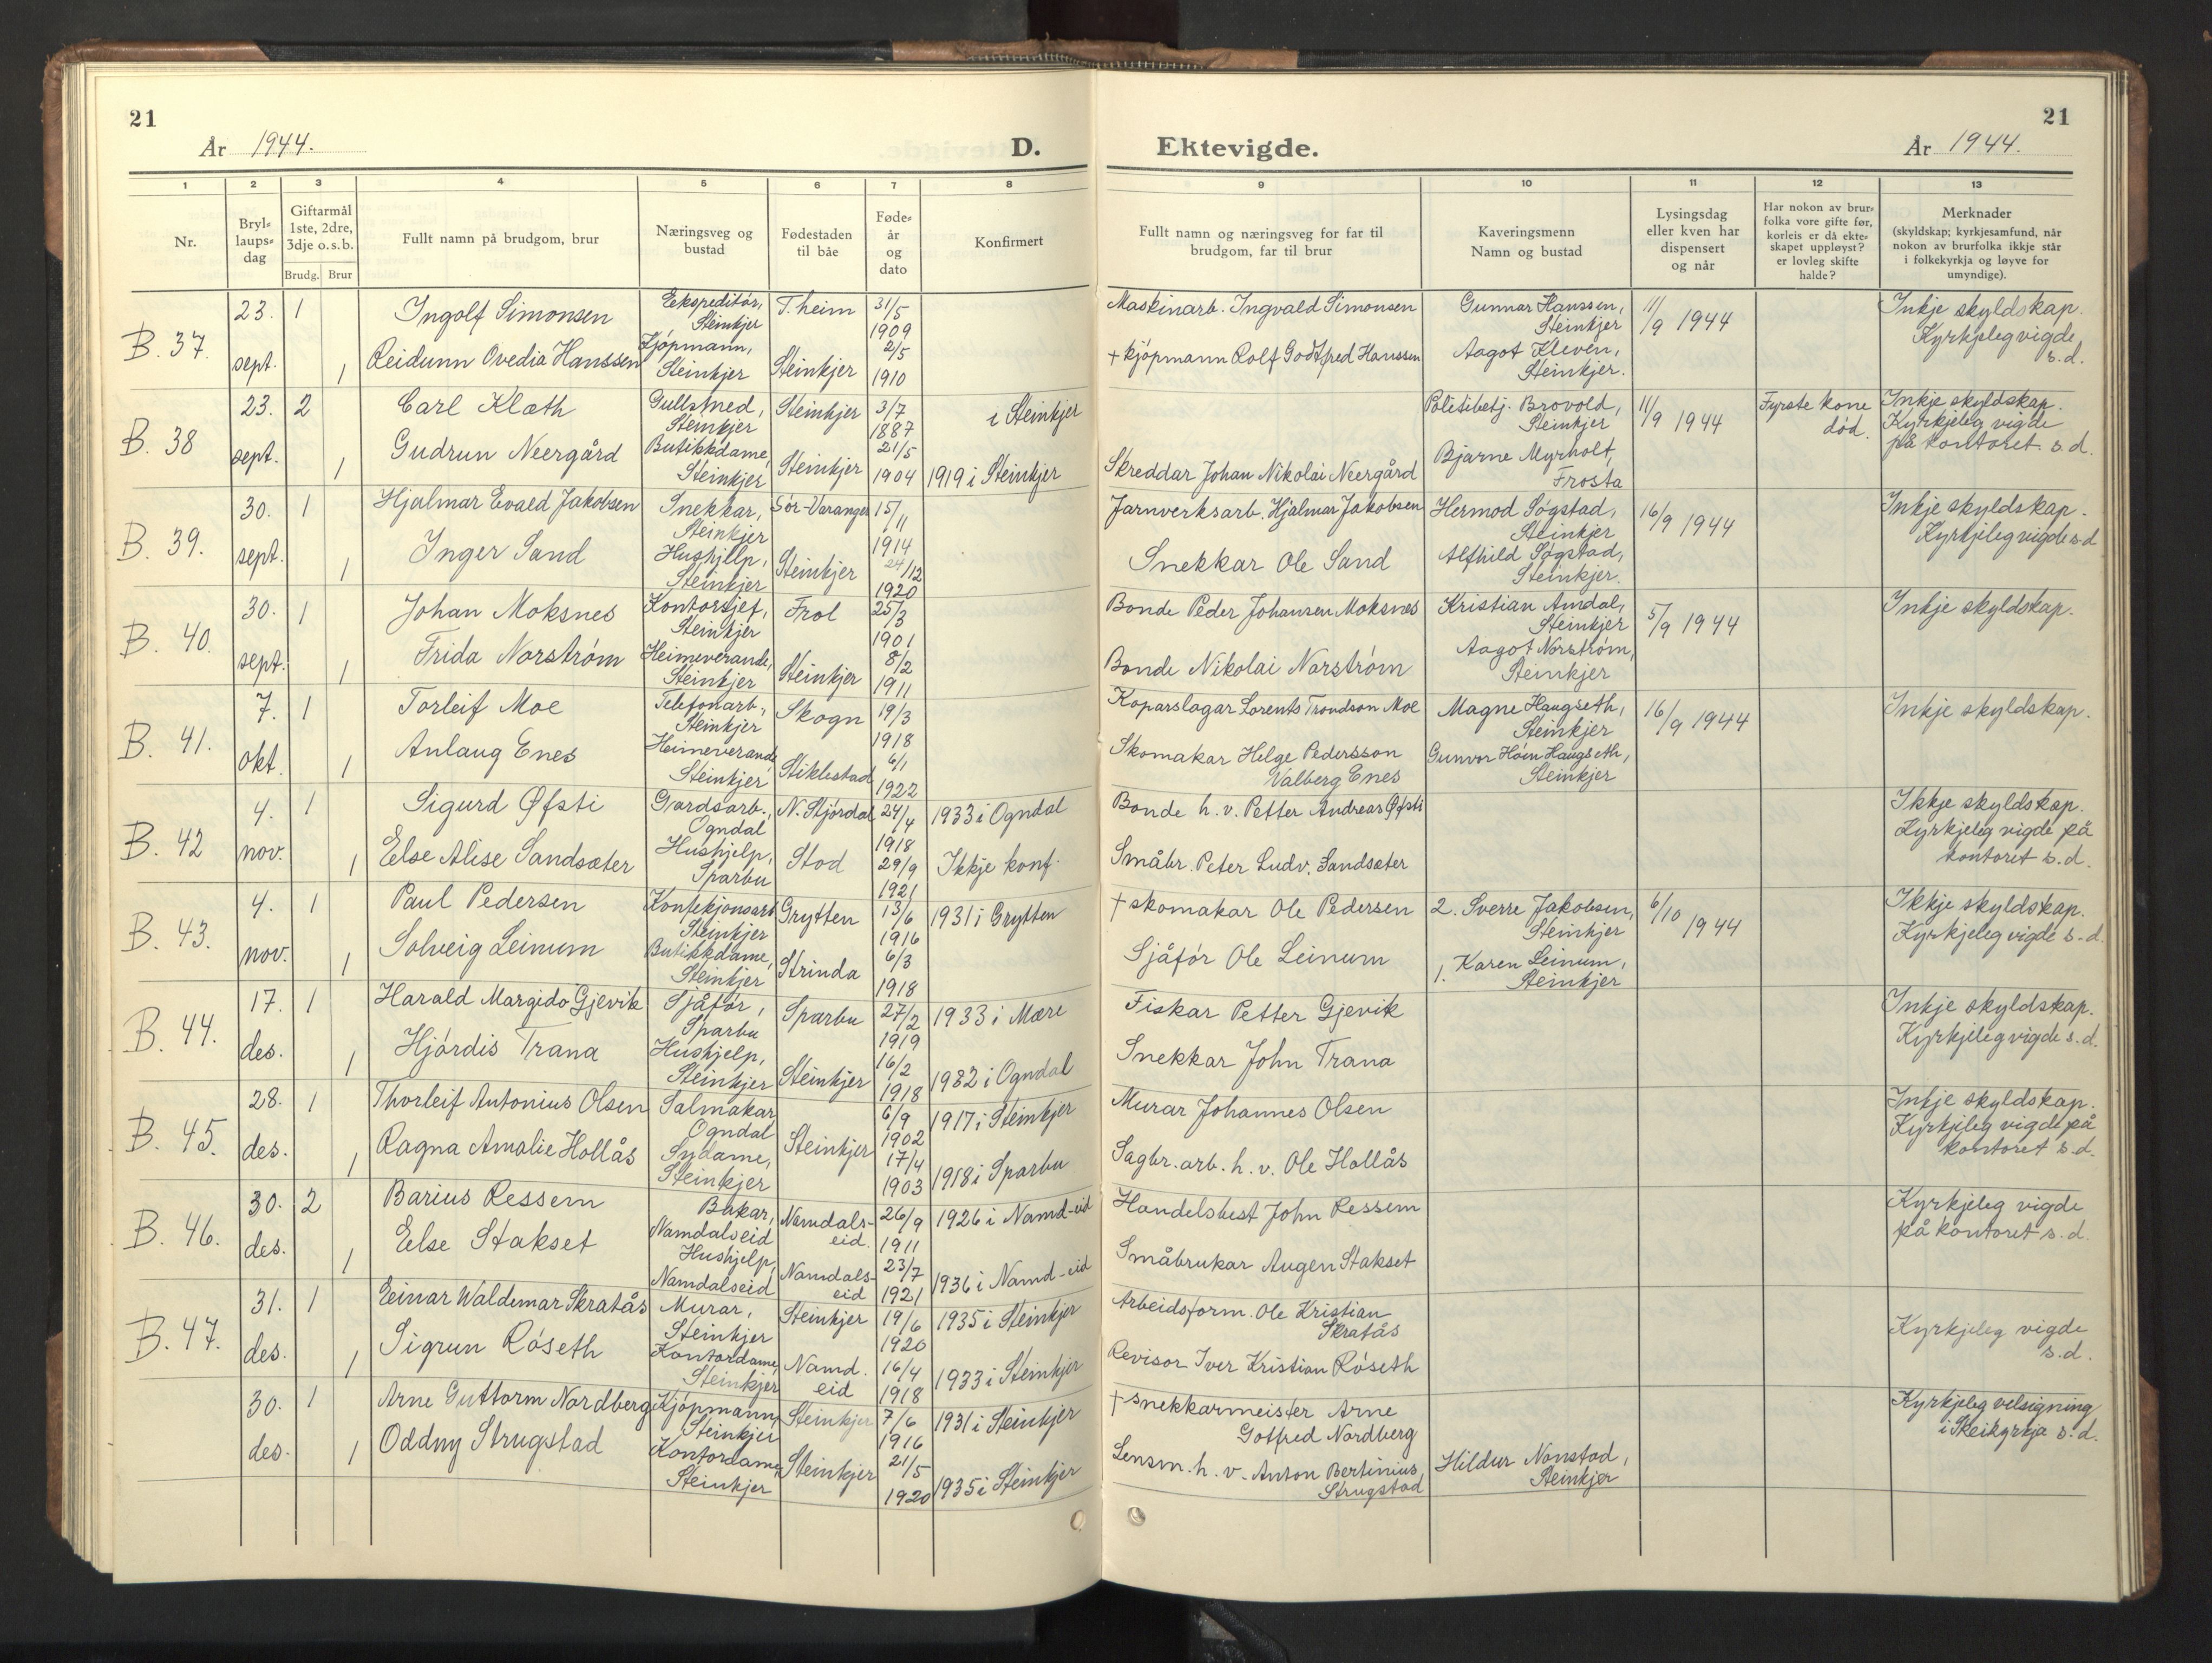 21
År 1944.
D.
Ektevigde.
År 1944.
21
1 2 3 4 5 6 7 8 9 10 11 12 13
Nr.
Bryl-
laups-
dag
Giftarmål
1ste, 2dre,
3dje o.s.b.
Brudg. Brur
Fullt namn på brudgom, brur
Næringsveg og
bustad
Fødestaden
til båe
Føde-
år
og
dato
Konfirmert
Fullt namn og næringsveg for far til
brudgom, far til brur
Kaveringsmenn
Namn og bustad
Lysingsdag
eller kven har
dispensert
og når
Har nokon av brur-
folka vore gifte før,
korleis er då ekte-
skapet uppløyst?
er lovleg skifte
halde?
Merknader
(skyldskap; kyrkjesamfund, når
nokon av brurfolka ikkje står
i folkekyrkja og løyve for
umyndige).
B. 37.
23.
sept.
1
1
Ingolf Simonsen
Reidunn Ovedia Hanssen
Eekspeditór,
Steinkjer
Kjópmann,
Steinkjer
T. heim
Steinkjer
31/5
1909
2/5
1910
Maskinarb. Ingvald Simonsen
+ kjópmann Rolf Godtfred Hanssen
Gunnar Hanssen,
Steinkjer
Aagot Kleven,
Steinkjer.
11/9 1944
Inkje skyldskap.
Kyrkjeleg vigde
s.d.
B. 38
23.
sept.
2
1
Carl Klæth
Gudrun Neergård
Gullsmed,
Steinkjer
Butikkdame,
Steinkjer
Steinkjer
Steinkjer
3/7
1887
21/5
1904
i Steinkjer
1919 i Steinkjer
Skreddar Johan Nikolai Neergård
Politibetj. Brovold,
Steinkjer
Bjarne Myrholt,
Frosta
11/9 1944
Fyrste kone
död.
Inkje skyldskap.
Kyrkjeleg vigde
på kontoret s.d.
B. 39.
30.
sept.
1
1
Hjalmar Evald Jakobsen
Inger Sand
Snekkar,
Steinkjer
Hushjelp,
Steinkjer
Sór-Varanger
Steinkjer
15/11
1914
24/12
1920
Jarnverksarb. Hjalmar Jakobsen
Snekkar Ole Sand
Hermod Sógstad,
Steinkjer
Alfhild Sógstad,
Steinkjer.
16/9 1944
Inkje skyldskap.
Kyrkjeleg vigde s.d
B. 40.
30.
sept.
1
1
Johan Moksnes
Frida Norstróm
Kontorsjef,
Steinkjer
Heimeverande,
Steinkjer
Frol
Steinkjer
25/3
1901
8/2
1911
Bonde Peder Johansen Moksnes
Bonde Nikolai Norstróm
Kristian Amdal,
Steinkjer
Aagot Norstróm,
Steinkjer
5/9 1944
Inkje skyldskap.
B. 41.
7.
okt.
1
1
Torleif Moe
Anlaug Enes
Telefonarb.,
Steinkjer
Heimeverande
Steinkjer
Skogn
Stiklestad
19/3
1918
6/1
1922
Koparslagar Lorents Trondson Moe
Skomakar Helge Pedersson
Valberg Enes
Magne Haugseth,
Steinkjer
Gunvor Hóin Haugseth,
Steinkjer
16/9 1944
Inkje skyldskap.
B. 42
4.
nov.
1
1
Sigurd Øfsti
Else Alise Sandsæter
Gardsarb.,
Ogndal
Hushjelp,
Sparbu
N. Stjórdal
Stod
24/4
1918
29/9
1921
1933 i Ogndal
Ikkje konf.
Bonde h. v. Petter Andreas Øfsti
Småbr. Peter Ludv. Sandsæter
Ikkje skyldskap.
Kyrkjeleg vigde på
kontoret s.d.
B. 43.
4.
nov.
1
1
Paul Pedersen
Solveig Leinum
Konfekjonsarb
Steinkjer
Butikkdame,
Steinkjer
Grytten
Strinda
13/6
1916
6/3
1918
1931 i Grytten
+ skomakar Ole Pedersen
Sjåfór Ole Leinum
2. Sverre Jakobsen,
Steinkjer
1. Karen Leinum,
Steinkjer
6/10 1944
Ikkje skyldskap.
Kyrkjeleg vigde s.d.
B. 44.
17.
des.
1
1
Harald Margido Gjevik
Hjórdis Trana
Sjåfór,
Sparbu
Hushjelp,
Steinkjer
Sparbu
Steinkjer
27/2
1919
16/2
1918
1933 i Mære
1932 i Ogndal
Fiskar Petter Gjevik
Snekkar John Trana
Inkje skyldskap.
Kyrkjeleg vigde s.d.
B. 45.
28.
des.
1
1
Thorleif Antonius Olsen
Ragna Amalie Hollås
Salmakar
Ogndal
Sydame,
Steinkjer
Steinkjer
6/9
1902
17/4
1903
1917 i Steinkjer
1918 i Sparbu
Murar Johannes Olsen
Sagbr. arb. h. v. Ole Hollås
Inkje skyldskap.
Kyrkjeleg vigde på
kontoret s.d.
B. 46.
30.
des.
2
1
Barius Ressem
Else Stakset
Bakar,
Namdalseid
Hushjelp,
Namdalseid
Namdals-
eid.
Namdals-
eid
26/9
1911
23/7
1921
1926 i Namd-eid
1936 i Namd-eid
Handelsbest John Ressem
Småbrukar Augen Stakset
Kyrkjeleg vigde
på kontoret s.d.
B. 47.
31.
des.
1
1
Einar Waldemar Skratås
Sigrun Róseth
Murar,
Steinkjer
Kontordame,
Steinkjer
Steinkjer
Namd.
eid
19/6
1920
16/4
1918
1935 i Steinkjer
1933 i Steinkjer
Arbeidsform. Ole Kristian
Skratås
Revisor Iver Kristian Róseth
Kyrkjeleg vigde
s.d.
30.
des.
1
1
Arne Guttorm Nordberg
Oddny Strugstad
Kjópmann,
Steinkjer
Kontordame,
Steinkjer
Steinkjer
Steinkjer
7/6
1916
21/5
1920
1931 i Steinkjer
1935 i Steinkjer
+ snekkarmeister Arne
Gotfred Nordberg
Lensm. h. v. Anton Bertinius
Strugstad
Hildur Nonstad,
Steinkjer
Kyrkjeleg velsigning
i Steikyrkja s.d.